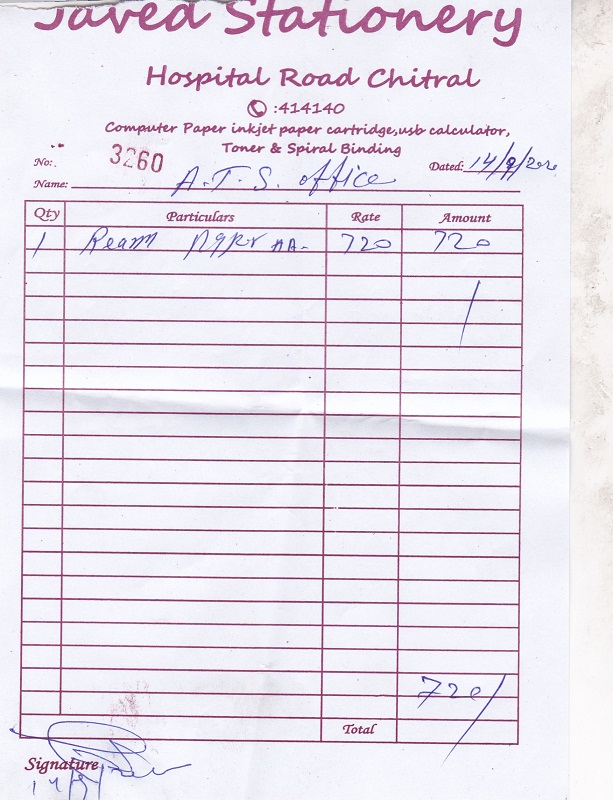 Javed Stationery
Hospital Road Chitral
:414140
Computer Paper inkjet paper cartridge,usb calculator,
Toner & Spiral Binding
No: 3260 Dated: 14/9/202
Name: A.T.S. office
Qty Particulars Rate Amount
1 Ream 720 720
720/
Total
Signature